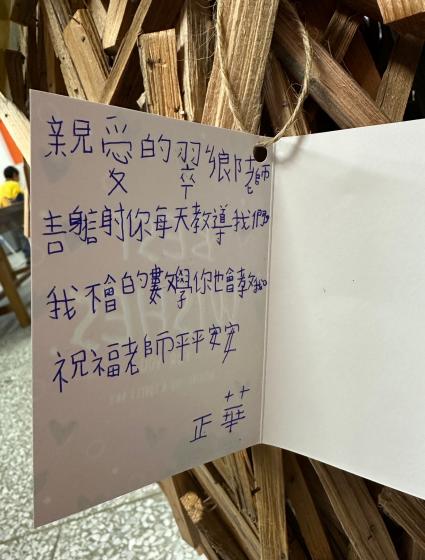 親愛的翠鄉老師
謝謝你每天教導我們
我不會的數學你也會教我
祝福老師平平安安
正華